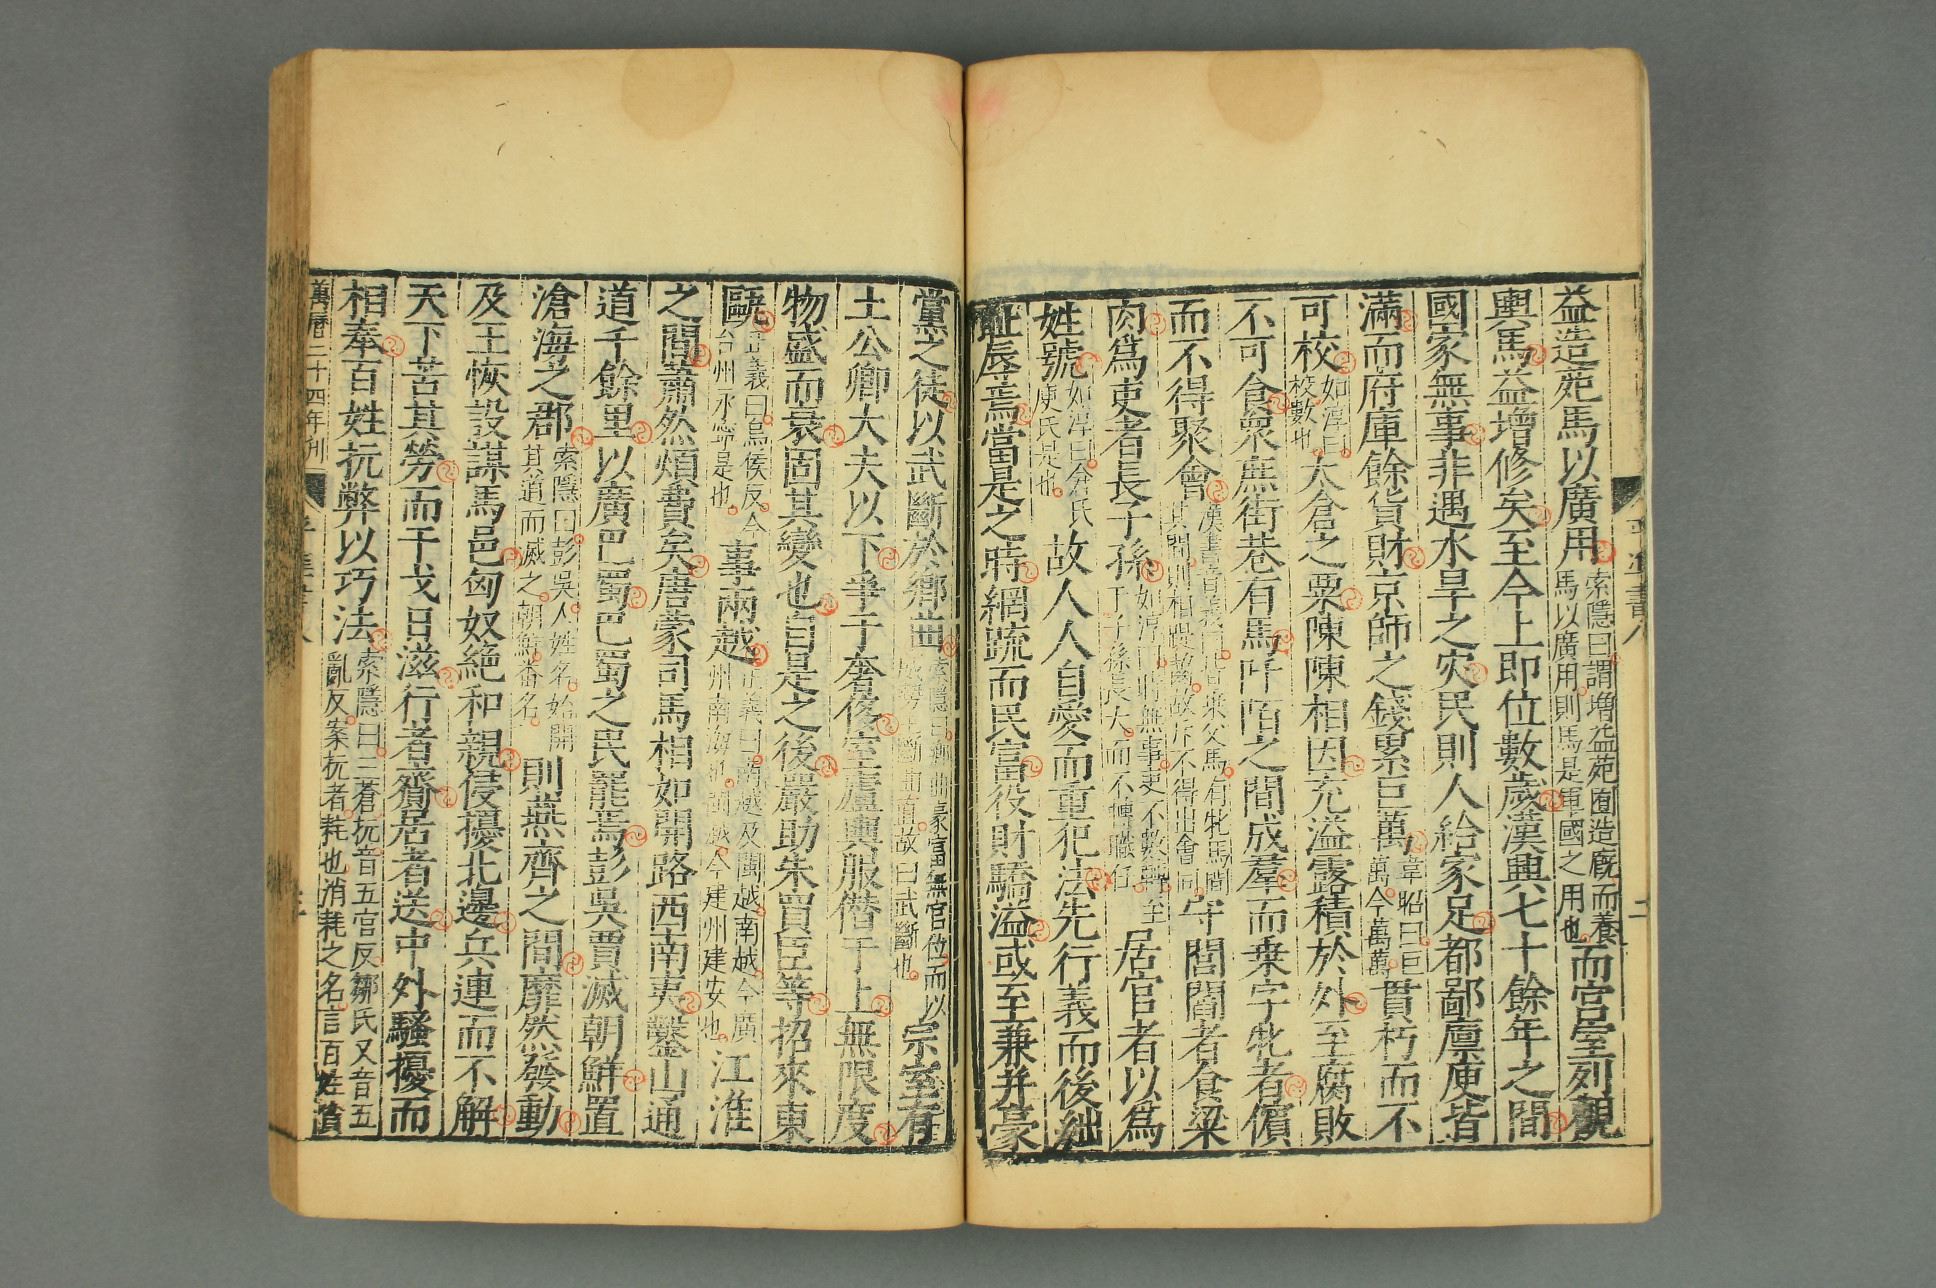 益造苑馬以廣用索隱曰謂增益苑囿造廐而養馬以廣用則馬是軍國之用也而宮室列觀
輿馬益增修矣至今上即位數歲漢興七十餘年之間
國家無事非遇水旱之災民則人給家足都鄙廪庾皆
滿而府庫餘貨財京師之錢累巨萬韋昭曰巨萬今萬萬貫朽而不
可校如淳曰校數也太倉之粟陳陳相因充溢露積於外至腐敗
不可食衆庶街巷有馬阡陌之間成羣而乗字牝者儐
而不得聚會漢書音義曰皆乗父馬有牝馬間其間則相踶齧故斥不得出會同守閭閻者食粱
肉爲吏者長子孫如淳曰時無事吏不數轉至于子孫長大而不轉職任居官者以爲
姓號如淳曰倉氏庾氏是也故人人自愛而重犯法先行義而後絀
耻辱焉當是之時網疏而民富役財驕溢或至兼并豪
平準書八
二
黨之徒以武斷於鄉曲索隱曰鄉曲豪富無官位而以威勢主斷曲直故曰武斷也宗室有
土公卿大夫以下爭于奢侈室廬輿服僭于上無限度
物盛而衰固其變也自是之後嚴助朱買臣等招來東
甌正義曰烏侯反今台州永寧是也事兩越正義曰南越及閩越南越今廣州南海也閩越今建州建安也江淮
之間蕭然煩費矣唐蒙司馬相如開路西南夷鑿山通
道千餘里以廣巴蜀巴蜀之民罷焉彭吳賈滅朝鮮置
滄海之郡索隱曰彭吳人姓名始開其道而滅之朝鮮番名則燕齊之間靡然發動
及王恢設謀馬邑匈奴絶和親侵擾北邊兵連而不解
天下苦其勞而干戈日滋行者齎居者送中外騷擾而
相奉百姓抏弊以巧法索隱曰三蒼抏音五官反鄒氏又音五亂反案抏者耗也消耗之名言百姓貧
萬曆二十四年刊